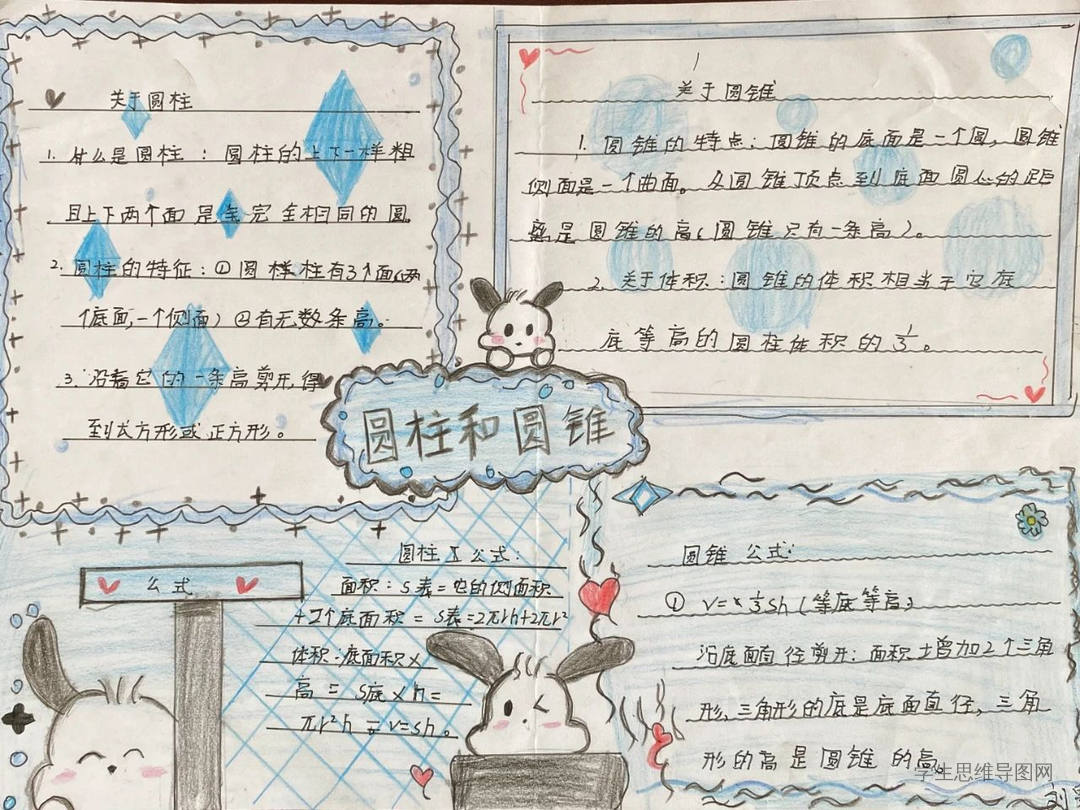 关于圆柱
1. 什么是圆柱：圆柱的上下一样粗
且上下两个面是完全相同的圆
2. 圆柱的特征：①圆柱有3个面(两
个底面,一个侧面) ②有无数条高。
3. 沿着它的一条高剪开,得
到长方形或正方形。
关于圆锥
1. 圆锥的特点：圆锥的底面是一个圆，圆锥
侧面是一个曲面。从圆锥顶点到底面圆心的距
离是圆锥的高(圆锥只有一条高)。
2. 关于体积：圆锥的体积相当于它底
底等高的圆柱体积的1/3。
圆柱和圆锥
公式
圆柱 公式：
面积：S表=它的侧面积
+2个底面积 = S表=2πrh+2πr²
体积：底面积×
高 = S底×h=
πr²h = V=sh。
圆锥 公式：
① V=1/3sh(等底等高)
沿底面直径剪开：面积增加2个三角
形,三角形的底是底面直径，三角
形的高是圆锥的高。
学生思维导图网